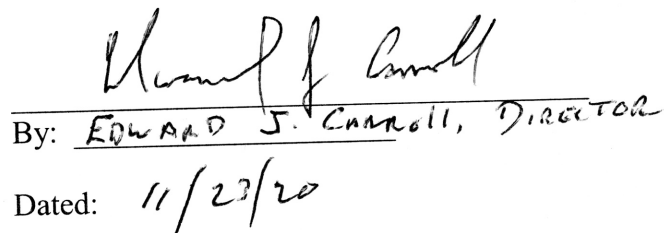 Edward J Carroll
By: EDWARD J. CARROll, DIRECTOR
Dated: 11/23/20